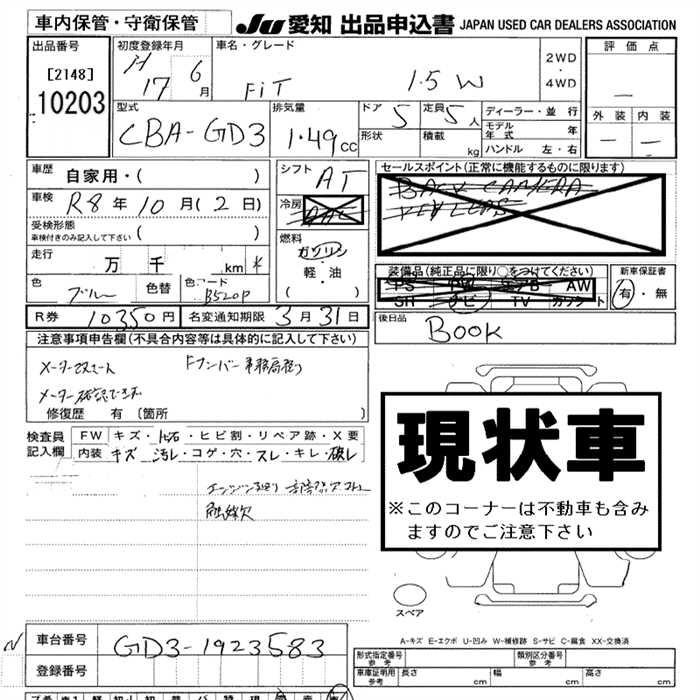 車内保管・守衛保管
JU 愛知 出品申込書 JAPAN USED CAR DEALERS ASSOCIATION
出品番号
[2148]
10203
初度登録年月
H17 6月
車名・グレード
FiT 1.5 W
2WD
・
4WD
評価点
—
外装 内装
— —
型式
CBA-GD3
排気量
1.49 cc
ドア
5
定員
5人
形状
積載
kg
ディーラー・並行
モデル年式 年
ハンドル 左・右
車歴
自家用・( )
車検
R8年10月(2日)
受検形態
車検付きのみ記入して下さい ( )
走行
万 千 km
色
ブルー
色替
色コード
B520P
シフト
AT
冷房
AAC
燃料
ガソリン
・
軽・油
( )
セールスポイント(正常に機能するものに限ります)
BACK CAMERA
KEYLESS
装備品(純正品に限り○をつけてください)
PS PW エアB AW
SR ナビ TV カワシート
新車保証書
有・無
R券 10350円
名変通知期限 3月31日
後日品
BOOK
注意事項申告欄(不具合内容等は具体的に記入して下さい)
メーター確認できず
修復歴 有 〔箇所 〕
検査員記入欄
FW キズ・トビ石・ヒビ割・リペア跡・X要
内装 キズ・汚レ・コゲ・穴・スレ・キレ・破レ
触媒欠
現状車
※このコーナーは不動車も含み
ますのでご注意下さい
スペア
A-キズ E-エクボ U-凹み W-補修跡 S-サビ C-腐食 XX-交換済
車台番号
GD3-1923583
登録番号
形式指定番号
参考
類別区分番号
参考
車庫証明用
参考
長さ cm 幅 cm 高さ cm